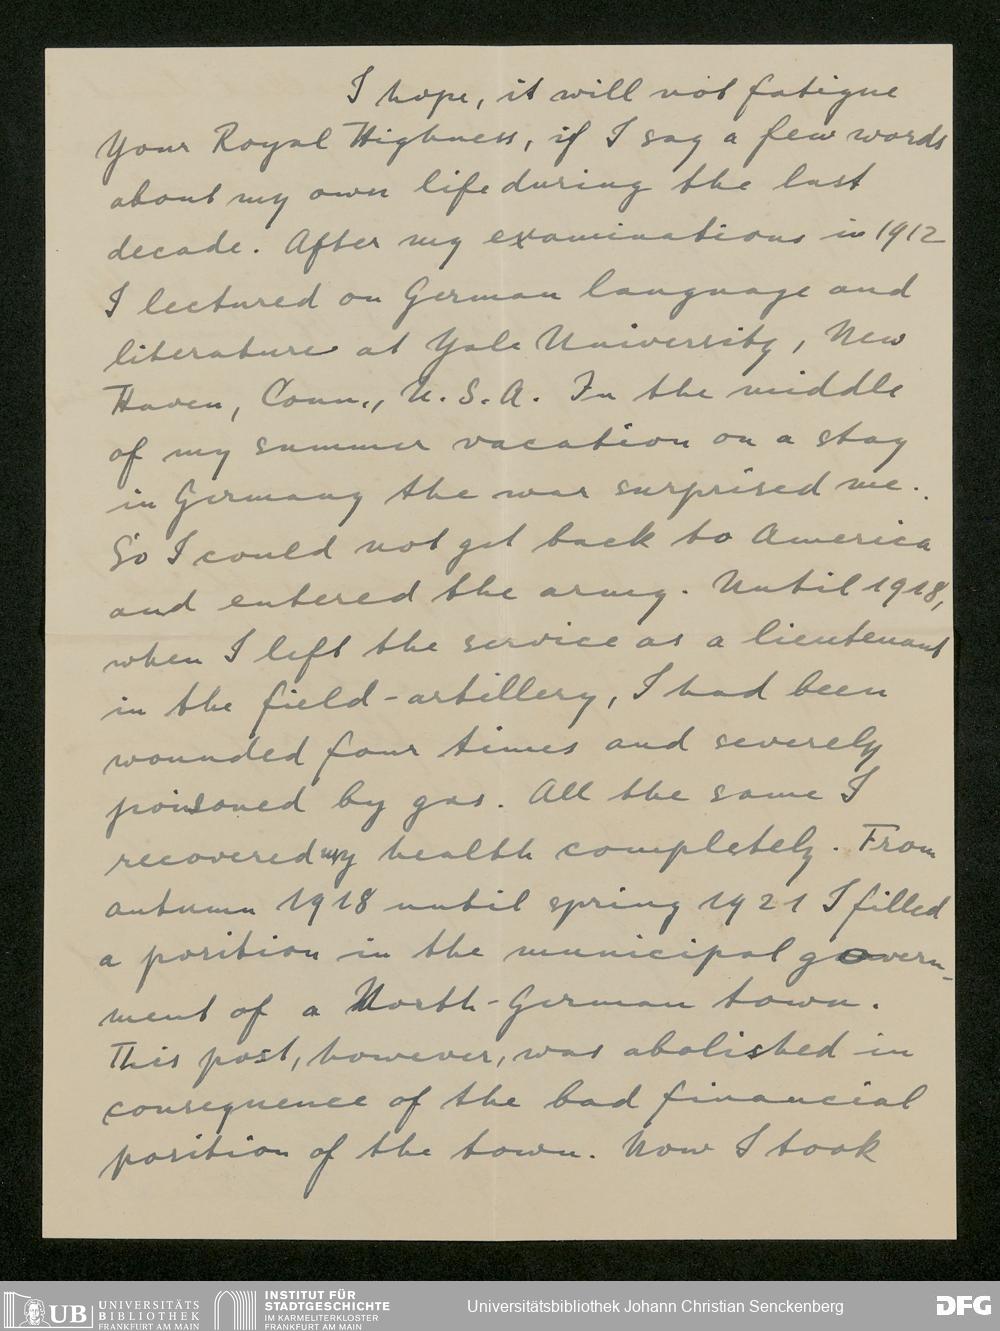 I hope, it will not fatigue
Your Royal Highness, if I say a few words
about my own life during the last
decade. After my examinations in 1912
I lectured on German language and
literature at Yale University, New
Haven, Conn., U. S. A. In the middle
of my summer vacation on a stay
in Germany the war surprised me.
So I could not get back to America
and entered the army. Until 1918,
when I left the service as a lieutenant
in the field-artillery, I had been
wounded four times and severely
poisoned by gas. All the same I
recovered my health completely. From
autumn 1918 until spring 1921 I filled
a position in the municipal govern-
ment of a North-German town.
This post, however, was abolished in
consequence of the bad financial
position of the town. Now I took
UB UNIVERSITÄTS
BIBLIOTHEK
FRANKFURT AM MAIN
INSTITUT FÜR
STADTGESCHICHTE
IM KARMELITERKLOSTER
FRANKFURT AM MAIN
Universitätsbibliothek Johann Christian Senckenberg
DFG